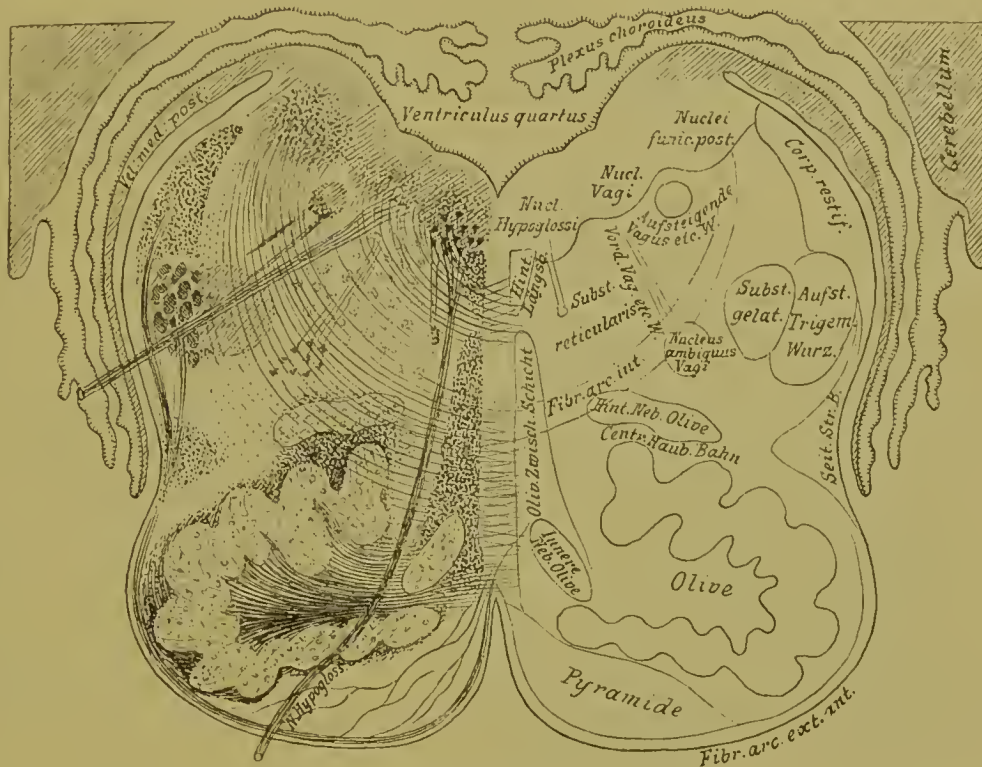 Plexus choroideus
Cerebellum
Vel. med. post.
Ventriculus quartus
Nuclei
funic. post.
Corp. restif.
Nucl.
Vagi
Nucl.
Hypoglossi
Aufsteigende
Vagus etc. W.
Hint.
Längsb.
Vord. Vag. etc. W.
Subst.
reticularis
Subst.
gelat.
Aufst.
Trigem.
Wurz.
Nucleus
ambiguus
Vagi
Fibr. arc. int.
Hint. Neb. Olive
Centr. Haub. Bahn
Seit. Str. B.
Oliv. Zwisch. Schicht
Innere
Neb. Olive
Olive
Pyramide
N. Hypogloss.
Fibr. arc. ext. int.